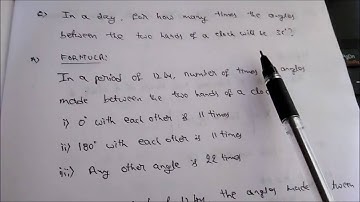 Q) In a day, for how many times the angles
between the two hands of a clock will be 35°?
A) FORMULA:
In a period of 12 hr, number of times angles
made between the two hands of a clock
i) 0° with each other is 11 times
ii) 180° with each other is 11 times
iii) Any other angle is 22 times
12 hr the angles made between